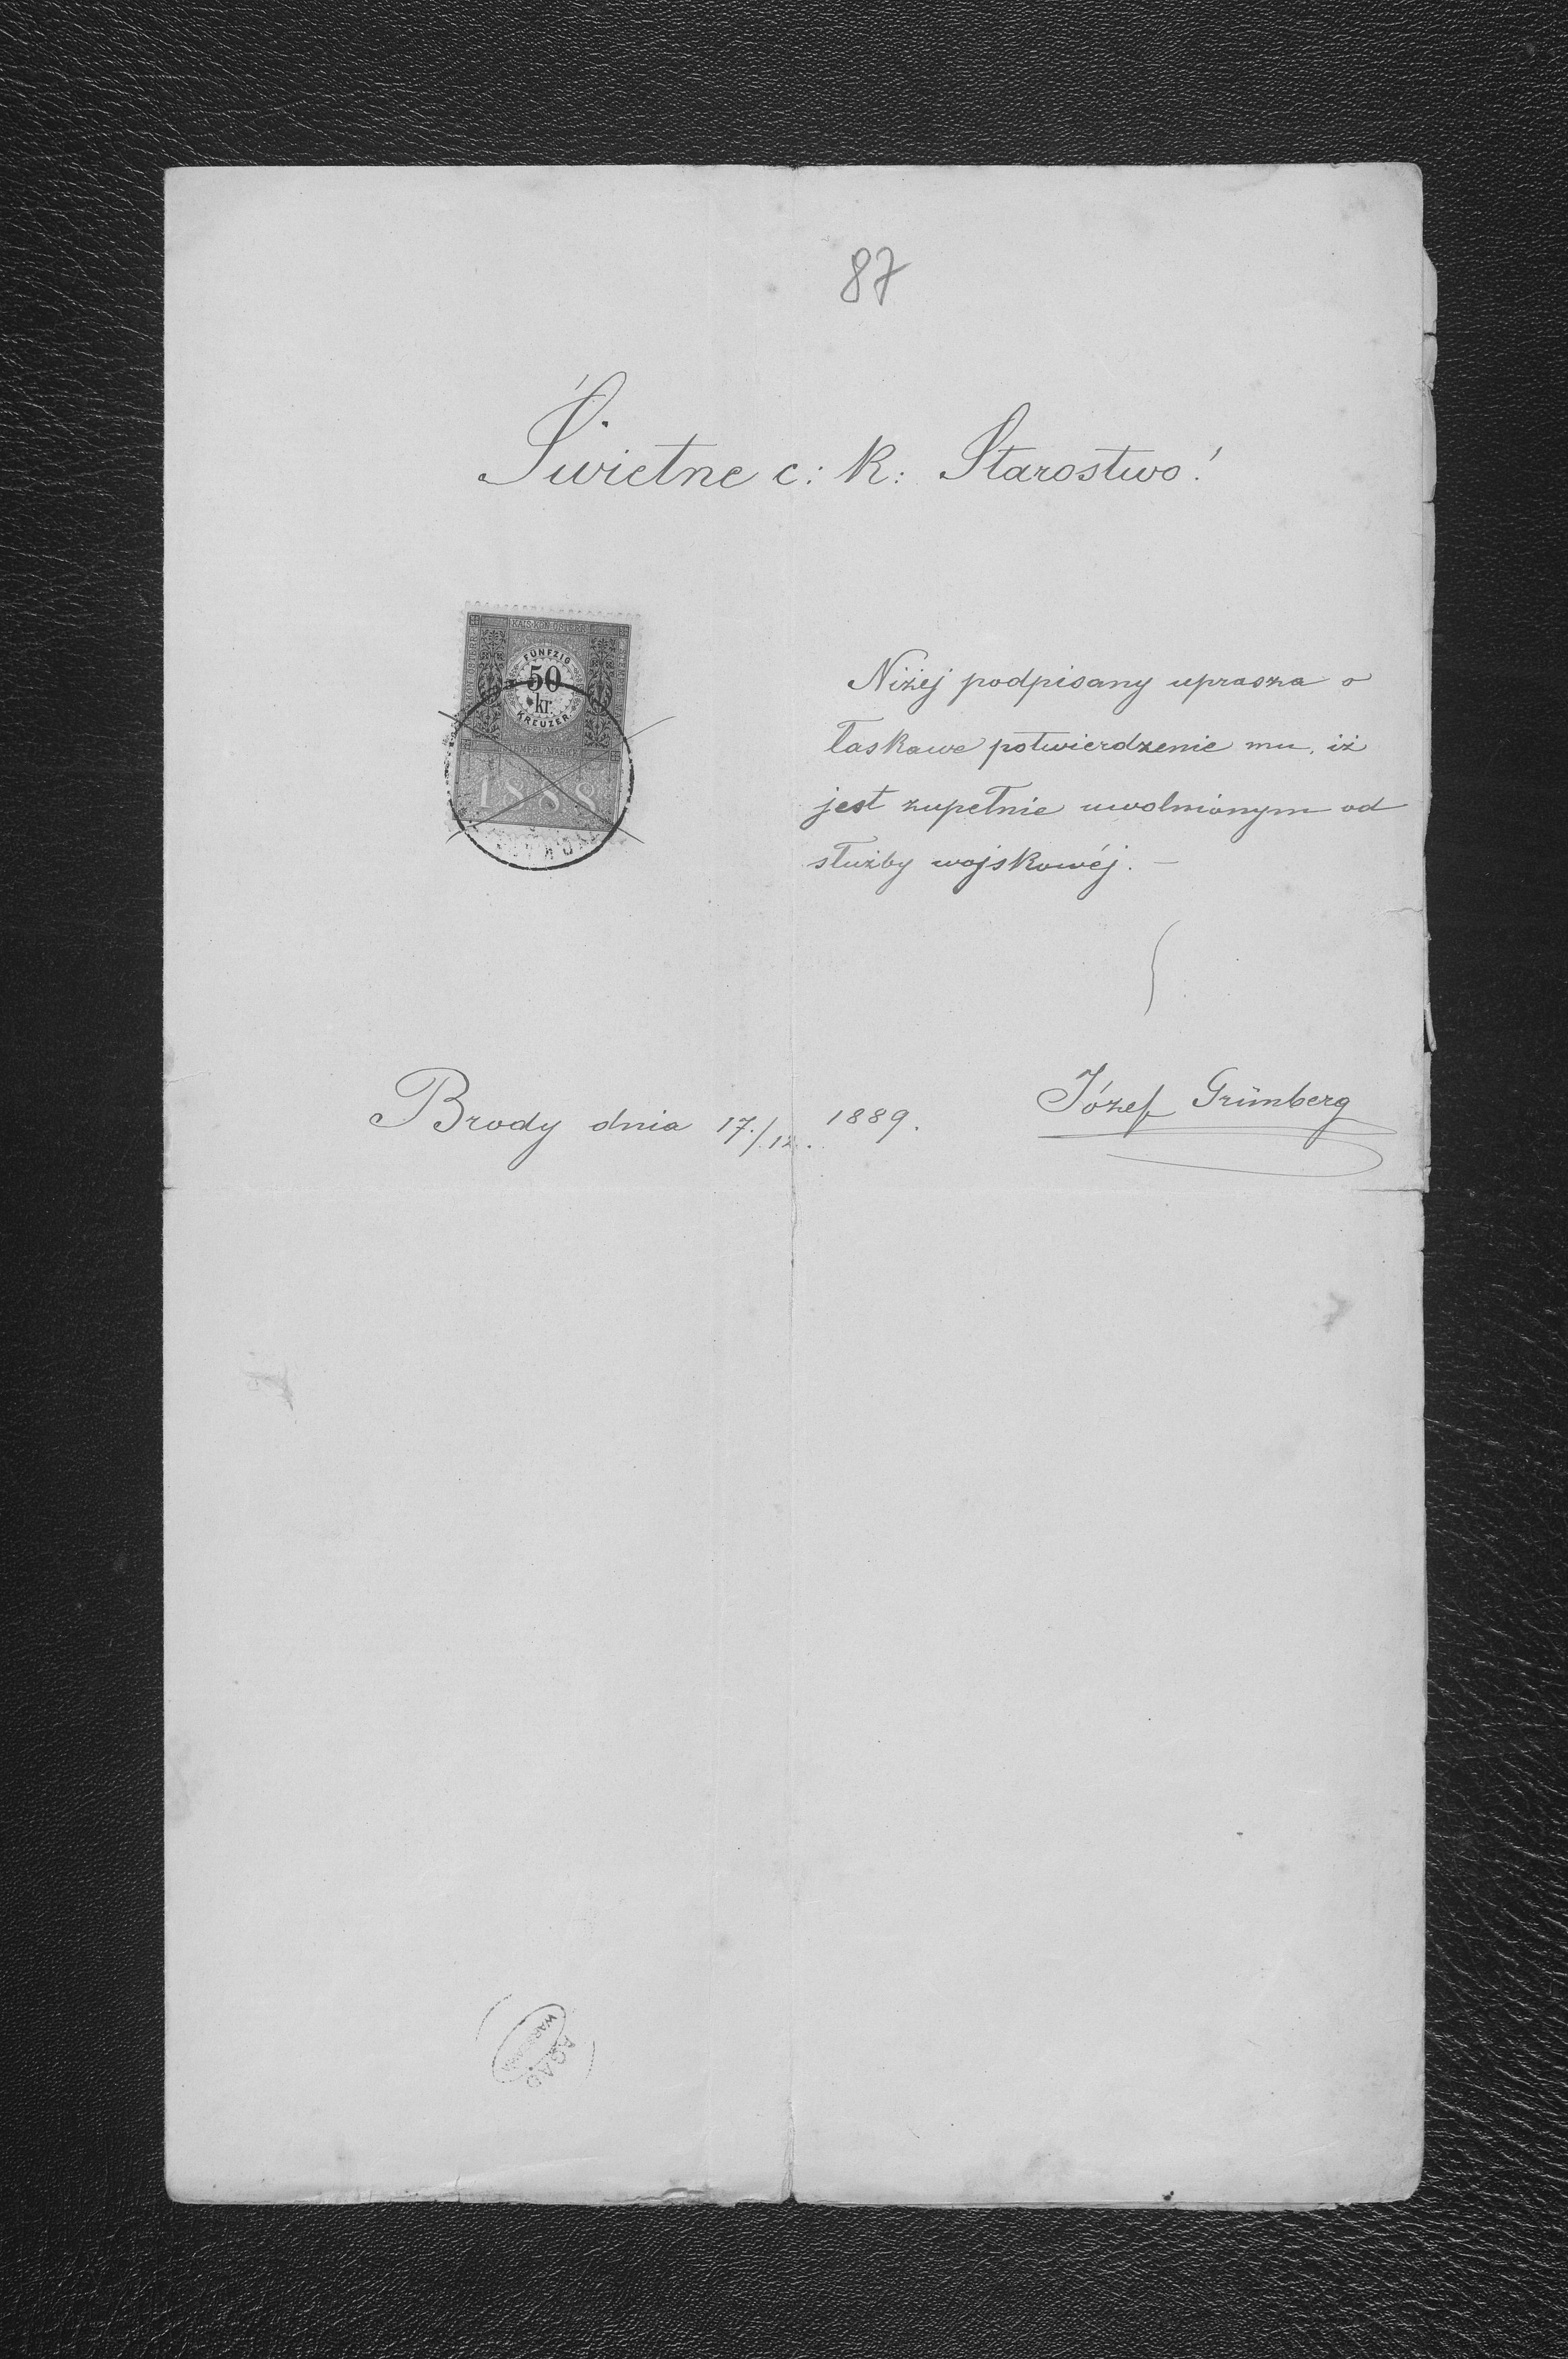 87
Świetne c: k: Starostwo!
KAIS. KÖN. ÖSTERR.
FÜNFZIG
50
kr.
KREUZER
STEMPEL MARKE
1888
Niżej podpisany uprasza o
łaskawe potwierdzenie mu, iż
jest zupełnie uwolnionym od
służby wojskowéj. —
Brody dnia 17./12. 1889.
Józef Grünberg
AGAD
WARSZAWA